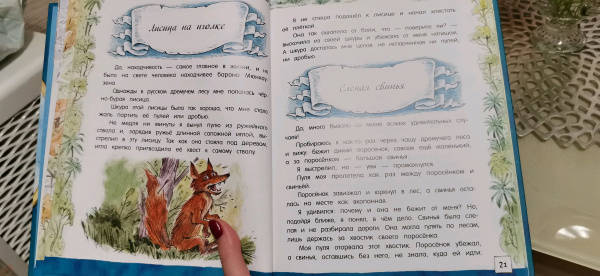 Лисица на иголке
Да, находчивость — самое главное в жизни, и не
было на свете человека находчивее барона Мюнхау-
зена.
Однажды в русском дремучем лесу мне попалась чёр-
но-бурая лисица.
Шкура этой лисицы была так хороша, что мне стало
жаль портить её пулей или дробью.
Не медля ни минуты, я вынул пулю из ружейного
ствола и, зарядив ружьё длинной сапожной иглой, вы-
стрелил в эту лисицу. Так как она стояла под деревом,
игла крепко пригвоздила её хвост к самому стволу.
Я не спеша подошёл к лисице и начал хлестать
её плёткой.
Она так ошалела от боли, что — поверите ли? —
выскочила из своей шкуры и убежала от меня нагишом.
А шкура досталась мне целая, не испорченная ни пулей,
ни дробью.
Слепая свинья
Да, много бывало со мною всяких удивительных слу-
чаев!
Пробираюсь я как-то раз через чащу дремучего леса
и вижу: бежит дикий поросёнок, совсем ещё маленький,
а за поросёнком — большая свинья.
Я выстрелил, но — увы — промахнулся.
Пуля моя пролетела как раз между поросёнком и
свиньёй.
Поросёнок завизжал и юркнул в лес, а свинья оста-
лась на месте как вкопанная.
Я удивился: почему и она не бежит от меня? Но,
подойдя ближе, я понял, в чём дело. Свинья была сле-
пая и не разбирала дороги. Она могла гулять по лесам,
лишь держась за хвостик своего поросёнка.
Моя пуля оторвала этот хвостик. Поросёнок убежал,
а свинья, оставшись без него, не знала, куда ей идти.
21